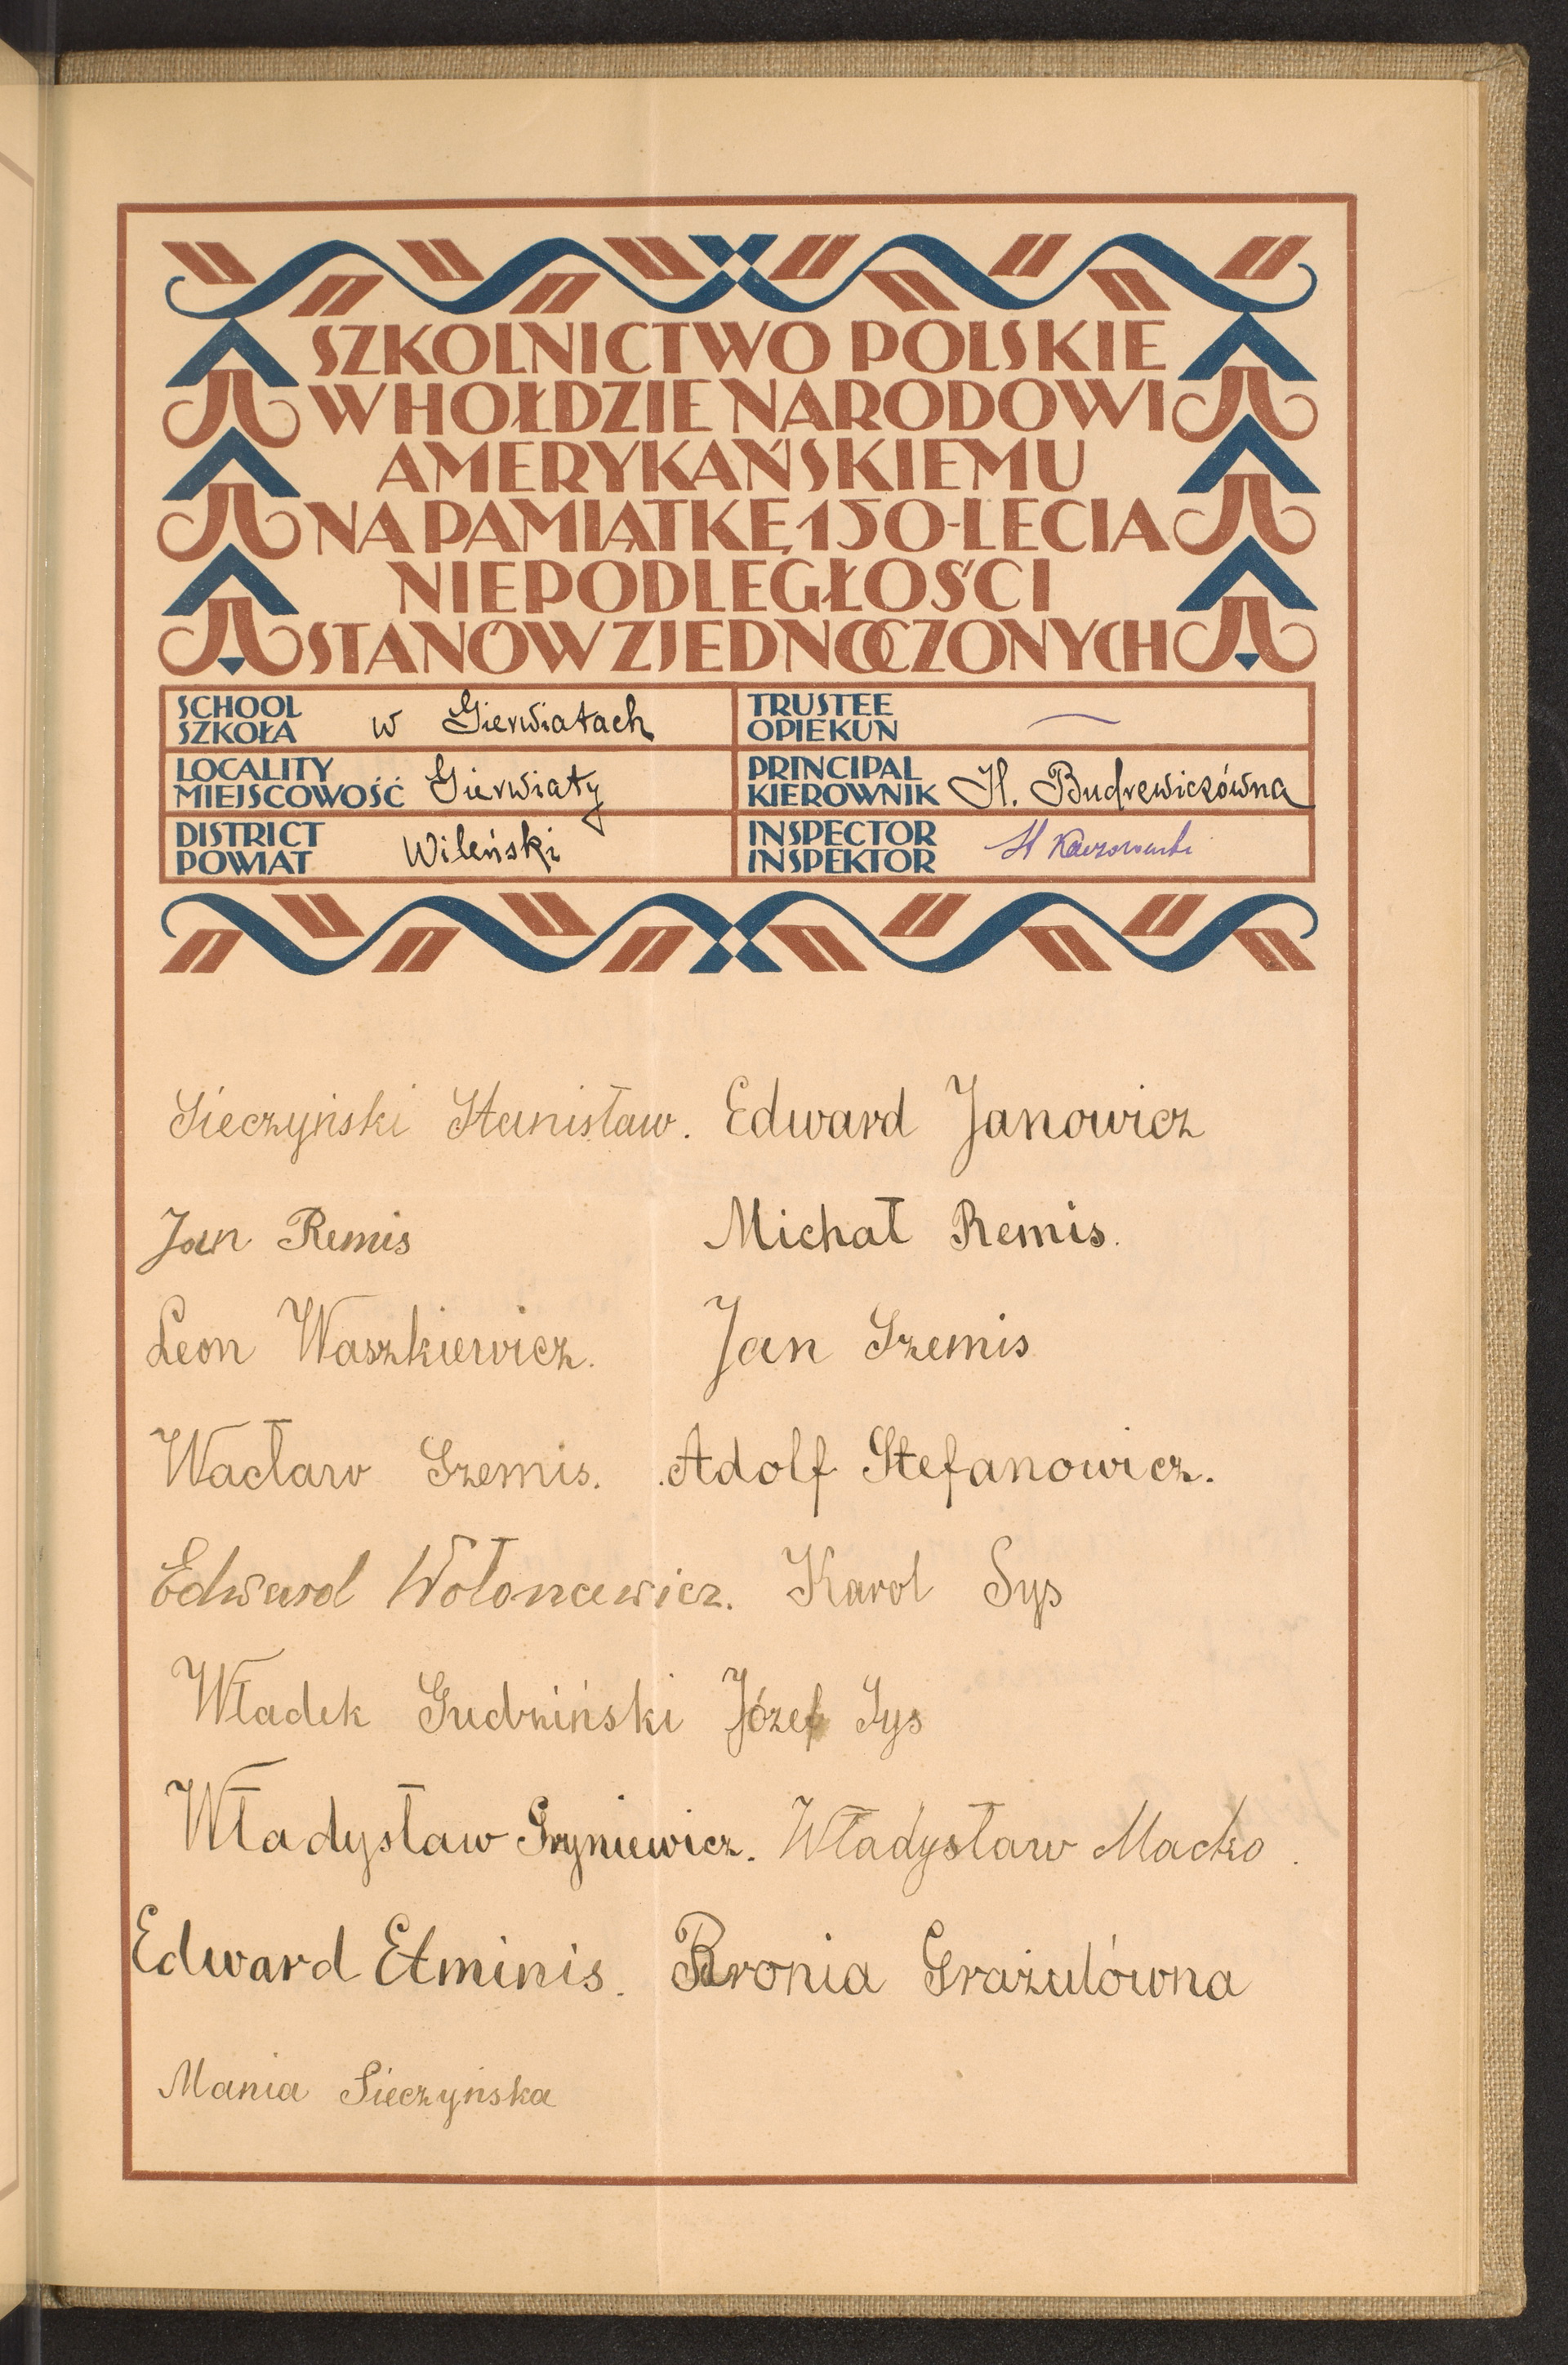 SZKOLNICTWO POLSKIE
W HOŁDZIE NARODOWI
AMERYKAŃSKIEMU
NA PAMIĄTKĘ 150-LECIA
NIEPODLEGŁOŚCI
STANÓW ZJEDNOCZONYCH
SCHOOL
SZKOŁA w Gierwiatach
TRUSTEE
OPIEKUN
LOCALITY
MIEJSCOWOŚĆ Gierwiaty
PRINCIPAL
KIEROWNIK H. Budrewiczówna
DISTRICT
POWIAT Wileński
INSPECTOR
INSPEKTOR
Sieczyński Stanisław. Edward Janowicz
Jan Remis Michał Remis.
Leon Waszkiewicz. Jan Szemis
Wacław Szemis. Adolf Stefanowicz.
Edward Wołoncewicz. Karol Sys
Władek Gudziński Józef Sys
Władysław Gryniewicz. Władysław Maćko.
Edward Etminis. Bronia Grażulówna
Mania Sieczyńska